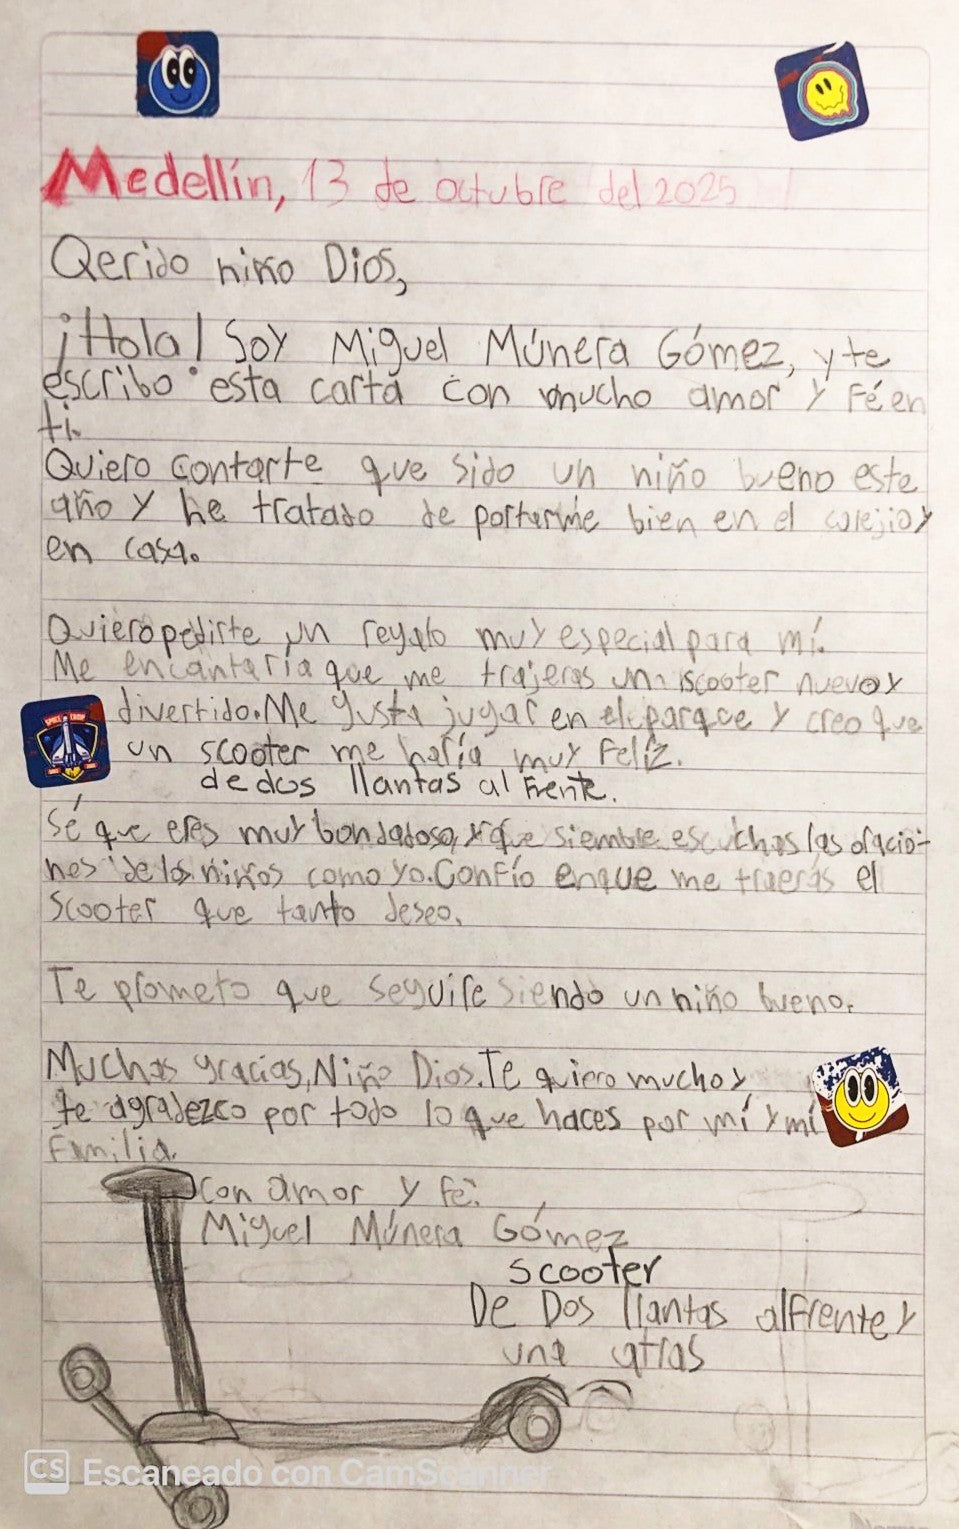 Medellín, 13 de octubre del 2025
Qerido niño Dios,
¡Hola! Soy Miguel Múnera Gómez, y te
escribo esta carta con mucho amor y Fé en
ti.
Quiero contarte que sido un niño bueno este
año y he tratado de portarme bien en el colejio y
en casa.
Quiero pedirte un regalo muy especial para mí.
Me encantaría que me trajeras un scooter nuevo y
divertido. Me gusta jugar en el parque y creo que
un scooter me haría muy Feliz.
de dos llantas al Frente.
Sé que eres muy bondadoso, y que siembre escuchas las oracio-
nes de los niños como yo. Confío en que me traerás el
Scooter que tanto deseo.
Te prometo que seguire siendo un niño bueno.
Muchas gracias, Niño Dios. Te quiero mucho y
te agradezco por todo lo que haces por mí y mí
Familia.
Con amor y fé.
Miguel Múnera Gómez
scooter
De Dos llantas al Frente y
una atras
SPACE CAMP
CS Escaneado con CamScanner